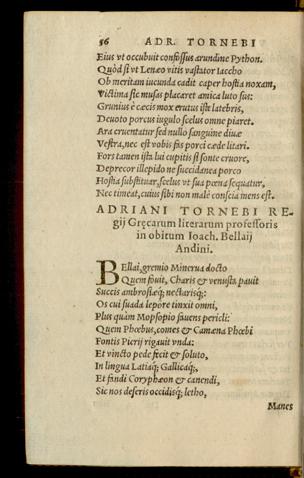 56 ADR. TORNEBI
Eius vt occubuit confossus arundine Python.
Quòd si vt Lenæo vitis vastator Iaccho
Ob meritam iucunda cadit caper hostia noxam,
Victima sic musas placaret amica luto sus:
Grunius è cæcis mox erutus iste latebris,
Deuoto porcus iugulo scelus omne piaret.
Ara cruentatur sed nullo sanguine diuæ
Vestra, nec est vobis fas porci cæde litari.
Fors tamen ista lui cupitis si sonte cruore,
Deprecor illepido ne succidanea porco
Hostia substituar, scelus vt sua pœna sequatur,
Nec timeat, cuius sibi non malè conscia mens est.
ADRIANI TORNEBI RE-
gij Gręcarum literarum professoris
in obitum Ioach. Bellaij
Andini.
BEllai, gremio Minerua docto
Quem fouit, Charis & venusta pauit
Succis ambrosiæq; nectarisq;:
Os cui suada lepore tinxit omni,
Plus quàm Mopsopio siuens pericli:
Quem Phœbus, comes & Camæna Phœbi
Fontis Pierij rigauit vnda:
Et vincto pede fecit & soluto,
In lingua Latiaq; Gallicaq;,
Et fandi Coryphæon & canendi,
Sic nos deseris occidisq; letho,
Manes